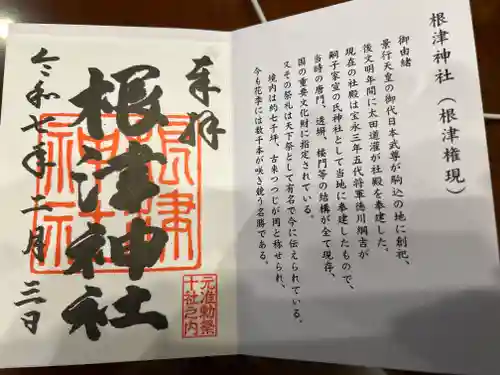 根津神社（根津権現）
御由緒
景行天皇の御代日本武尊が駒込の地に創祀、
後文明年間に太田道灌が社殿を奉建した。
現在の社殿は宝永三年五代将軍徳川綱吉が
嗣子家宣の氏神社として当地に奉建したもので、
当時の唐門、透塀、楼門等の結構が全て現存、
国の重要文化財に指定されている。
又その祭礼は天下祭として有名で今に伝えられている。
境内は約七千坪、古来つつじが岡と称せられ、
今も花季には数千本が咲き競う名勝である。
奉拝
根津神社
根津
神社
元准勅祭
十社之内
令和七年二月三日